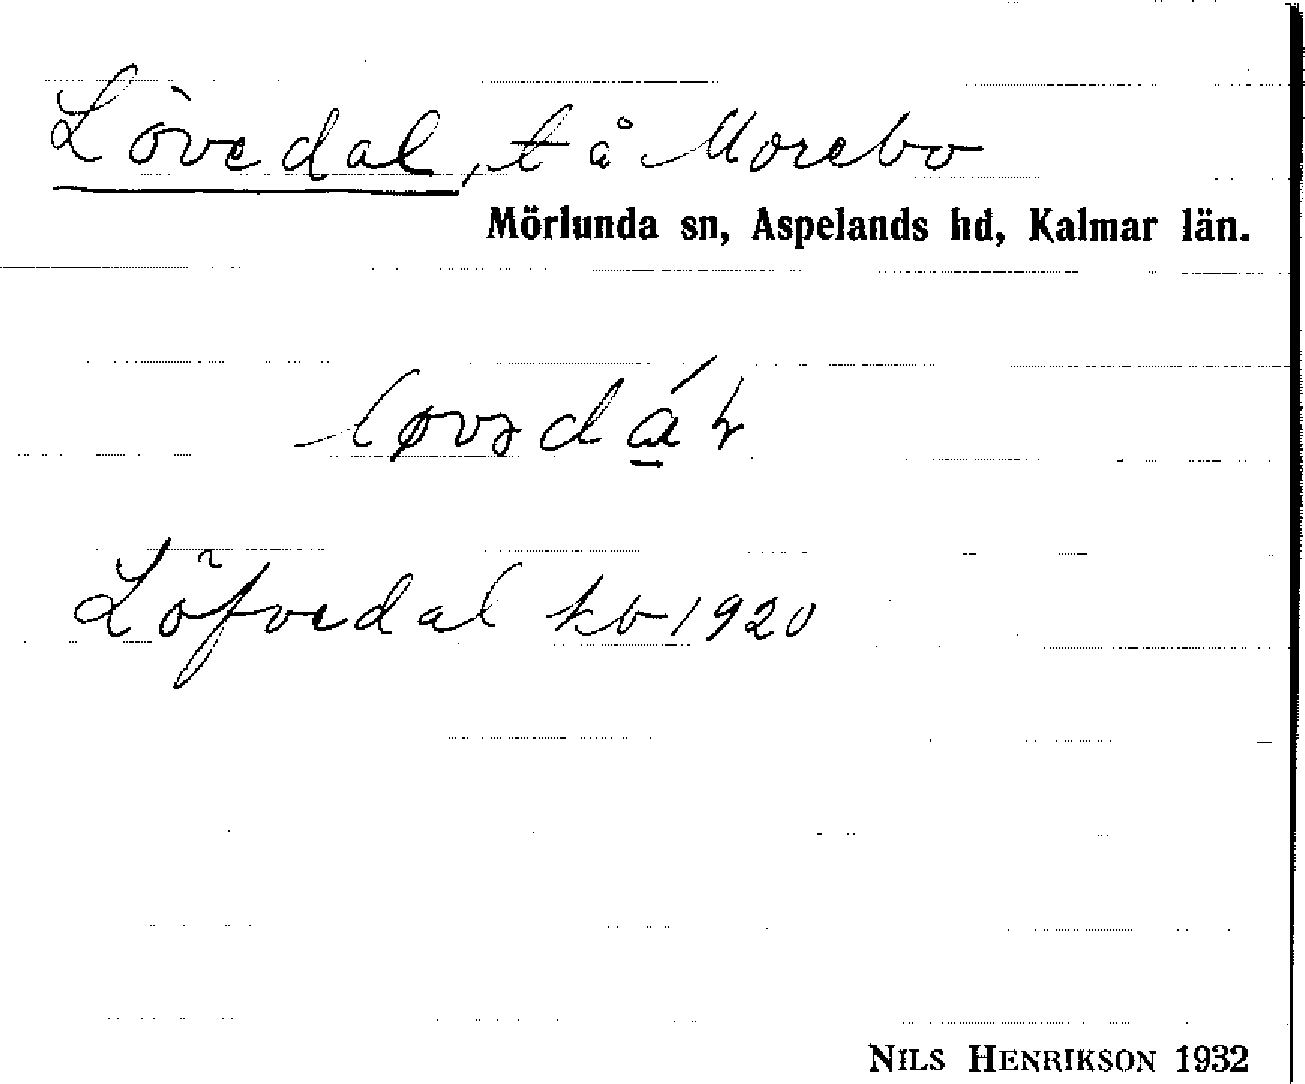 Lövedal, t å Morebo
Mörlunda sn, Aspelands hd, Kalmar län.
Löfvedal kb 1920
NILS HENRIKSON 1932